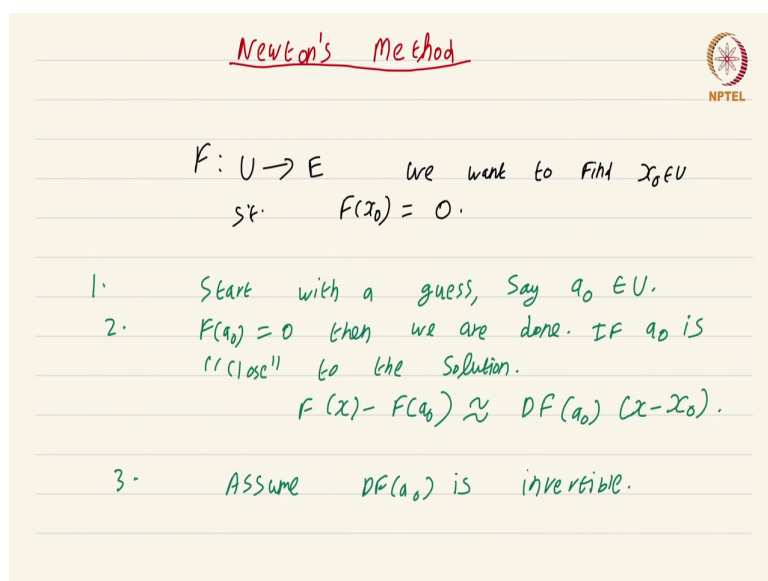 Newton's Method
NPTEL
F: U → E We want to find x₀ ∈ U
s.t. F(x₀) = 0.
1. Start with a guess, say a₀ ∈ U.
2. F(a₀) = 0 then we are done. IF a₀ is
"close" to the solution.
F(x) - F(a₀) ≈ DF(a₀) (x-x₀).
3. Assume DF(a₀) is invertible.